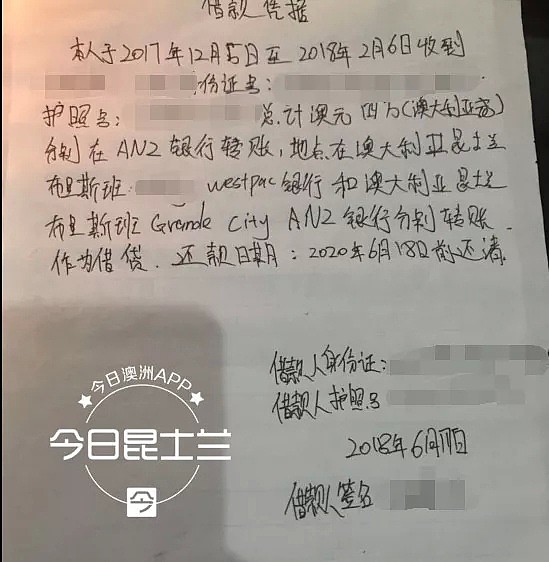 借款凭据
本人于2017年12月5日至2018年2月6日收到
份证号:
护照号: 总计澳元四万(澳大利亚
分别在ANZ银行转账,地点在澳大利亚昆士兰
布里斯班 westpac银行和澳大利亚昆士兰
布里斯班Grande City ANZ银行分别转账.
作为借贷.还款日期:2020年6月18日前还清.
借款人身份证:
借款人护照号
2018年6月 日
借款人签名
今日澳洲APP
今日昆士兰
今